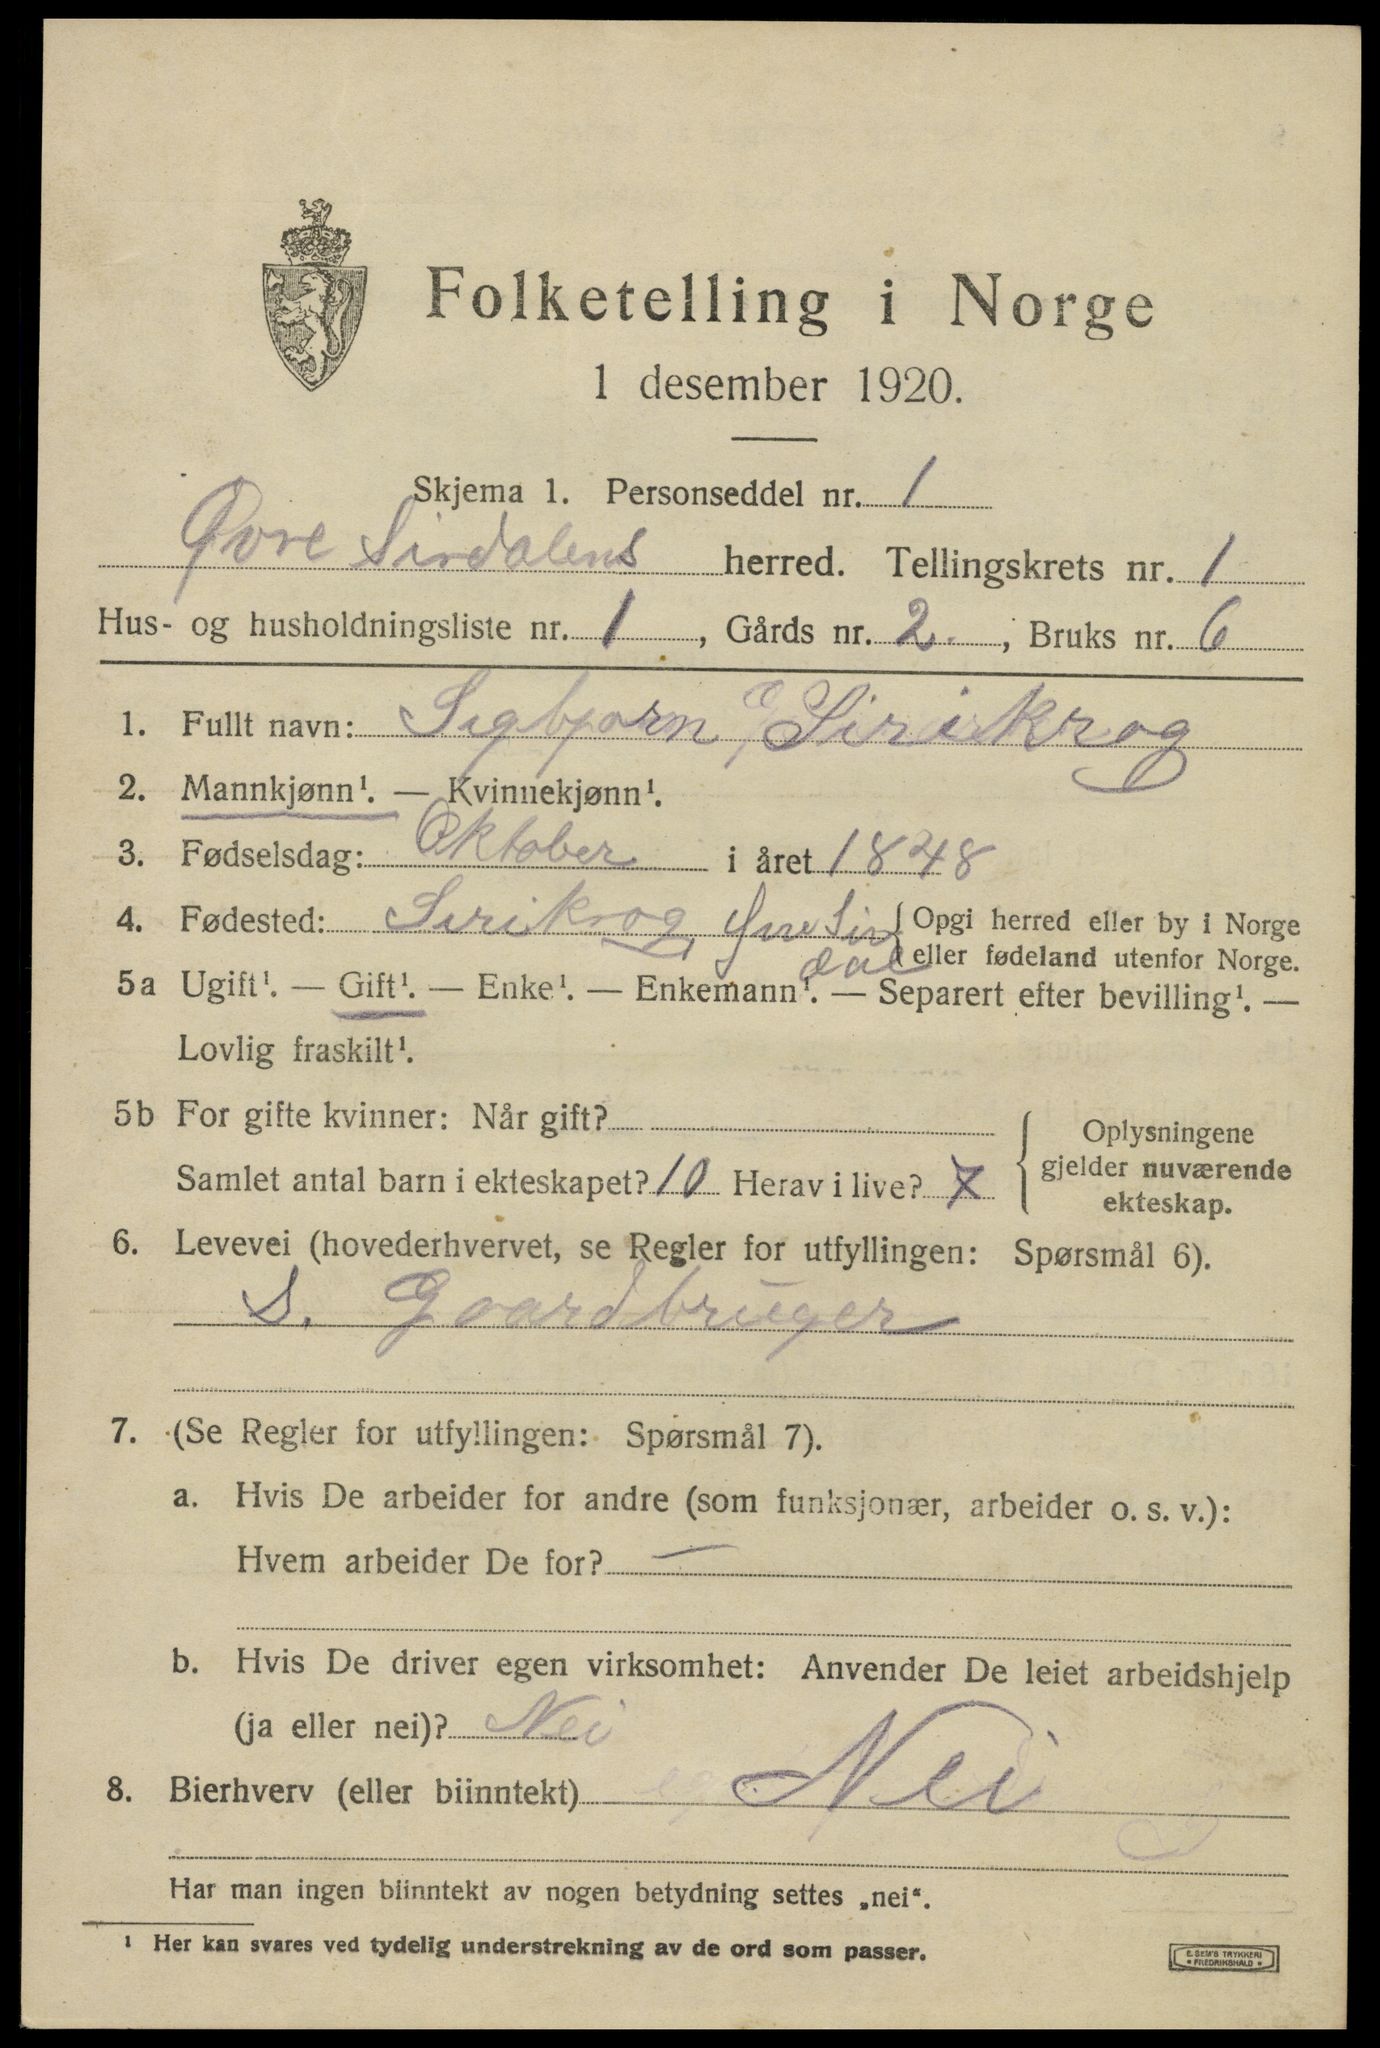 Folketelling i Norge
1 desember 1920.
Skjema 1. Personseddel nr. 1
Øvre Sirdalens herred. Tellingskrets nr. 1
Hus- og husholdningsliste nr. 1, Gårds nr. 2., Bruks nr. 6
1. Fullt navn: Sigbjorn Sirikrog
2. Mannkjønn¹. — Kvinnekjønn¹.
3. Fødselsdag: Oktober i året 1848
4. Fødested: Sirikrog, Øvre Sir { Opgi herred eller by i Norge
dal eller fødeland utenfor Norge.
5a Ugift¹. — Gift¹. — Enke¹. — Enkemann¹. — Separert efter bevilling¹. —
Lovlig fraskilt¹.
5b For gifte kvinner: Når gift?
Samlet antal barn i ekteskapet? 10 Herav i live? 7
{ Oplysningene
gjelder nuværende
ekteskap.
6. Levevei (hovederhvervet, se Regler for utfyllingen: Spørsmål 6).
S. Gaardbruger
7. (Se Regler for utfyllingen: Spørsmål 7).
a. Hvis De arbeider for andre (som funksjonær, arbeider o. s. v.):
Hvem arbeider De for? —
b. Hvis De driver egen virksomhet: Anvender De leiet arbeidshjelp
(ja eller nei)? Nei
8. Bierhverv (eller biinntekt) Nei
Har man ingen biinntekt av nogen betydning settes „nei“.
¹ Her kan svares ved tydelig understrekning av de ord som passer.
E. SEM'S TRYKKERI
• FREDRIKSHALD •